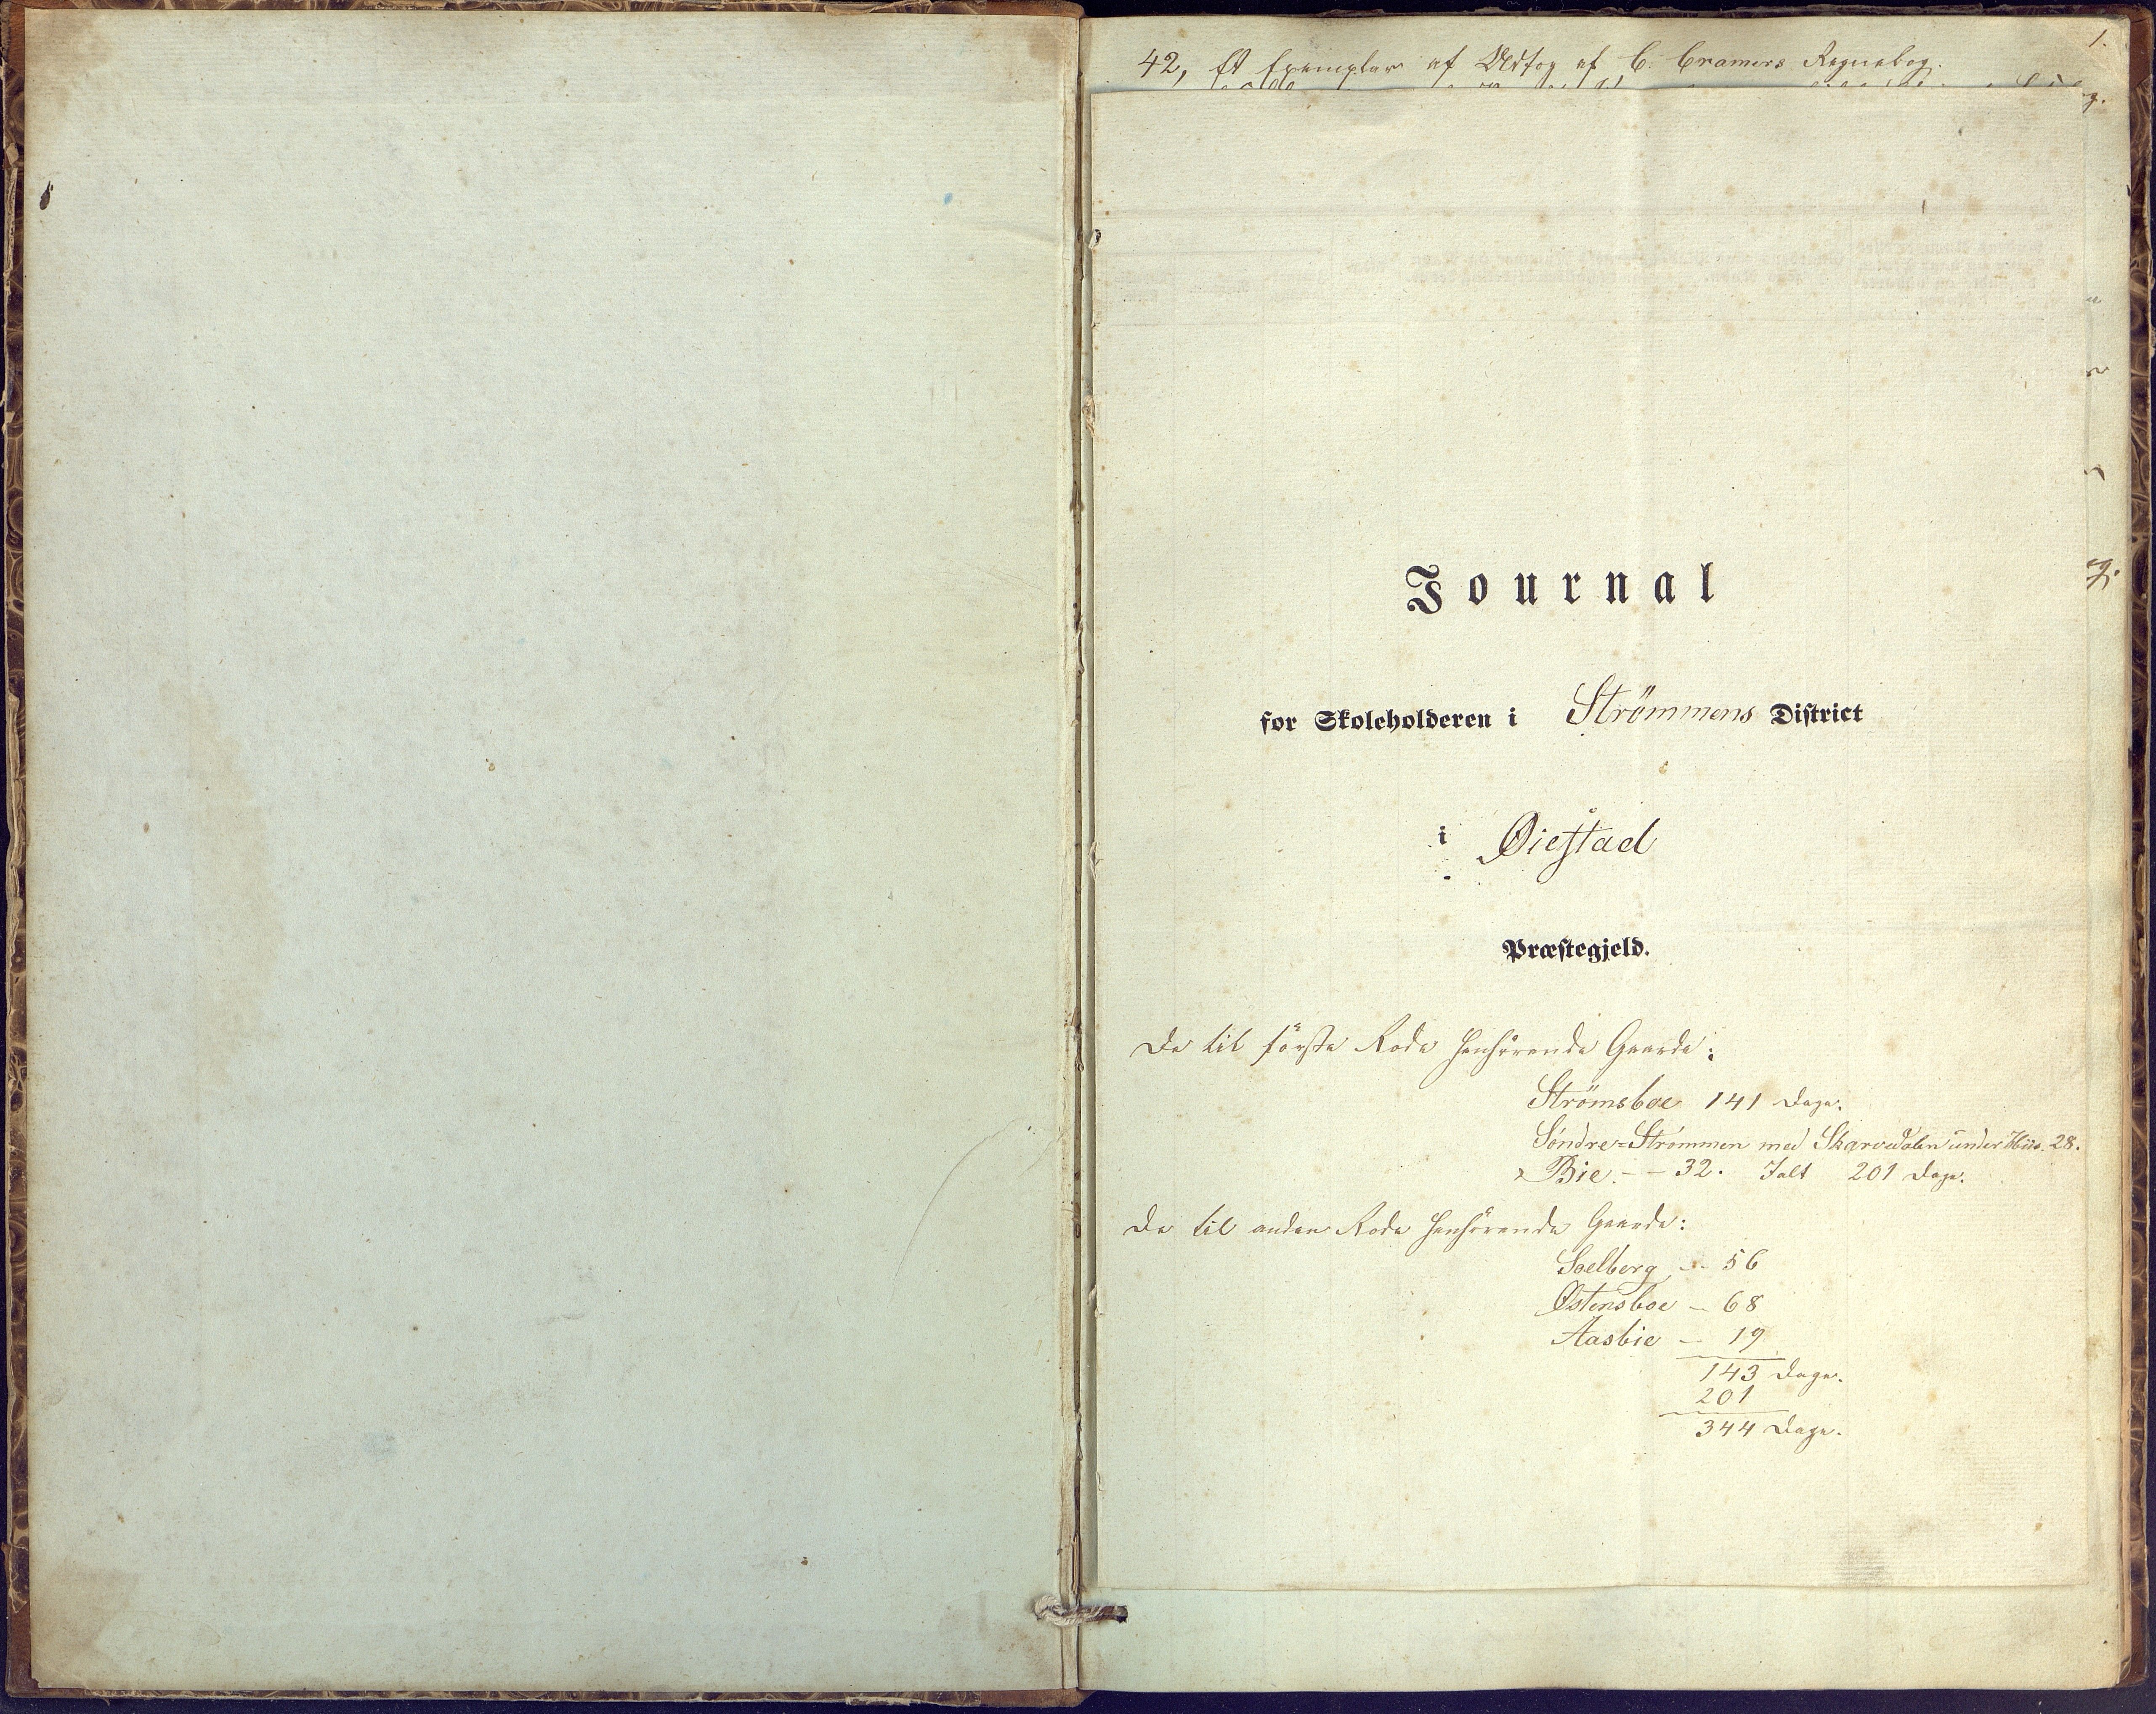 1.
42, Et Exemplar af Udtog af C. Cramers Regnebog.
Journal
for Skoleholderen i Strömmens District
i Øiestad
Præstegjeld.
De til förste Rode henhörende Gaarde:
Strömsboe 141 Dage.
Söndre-Strömmen med Skarvedalen under Hiis. 28.
Bie. - - 32. Ialt 201 Dage.
De til anden Rode henhörende Gaarde:
Soelberg - - 56
Østensboe - 68
Aasbie - 19
143 Dage.
201
344 Dage.